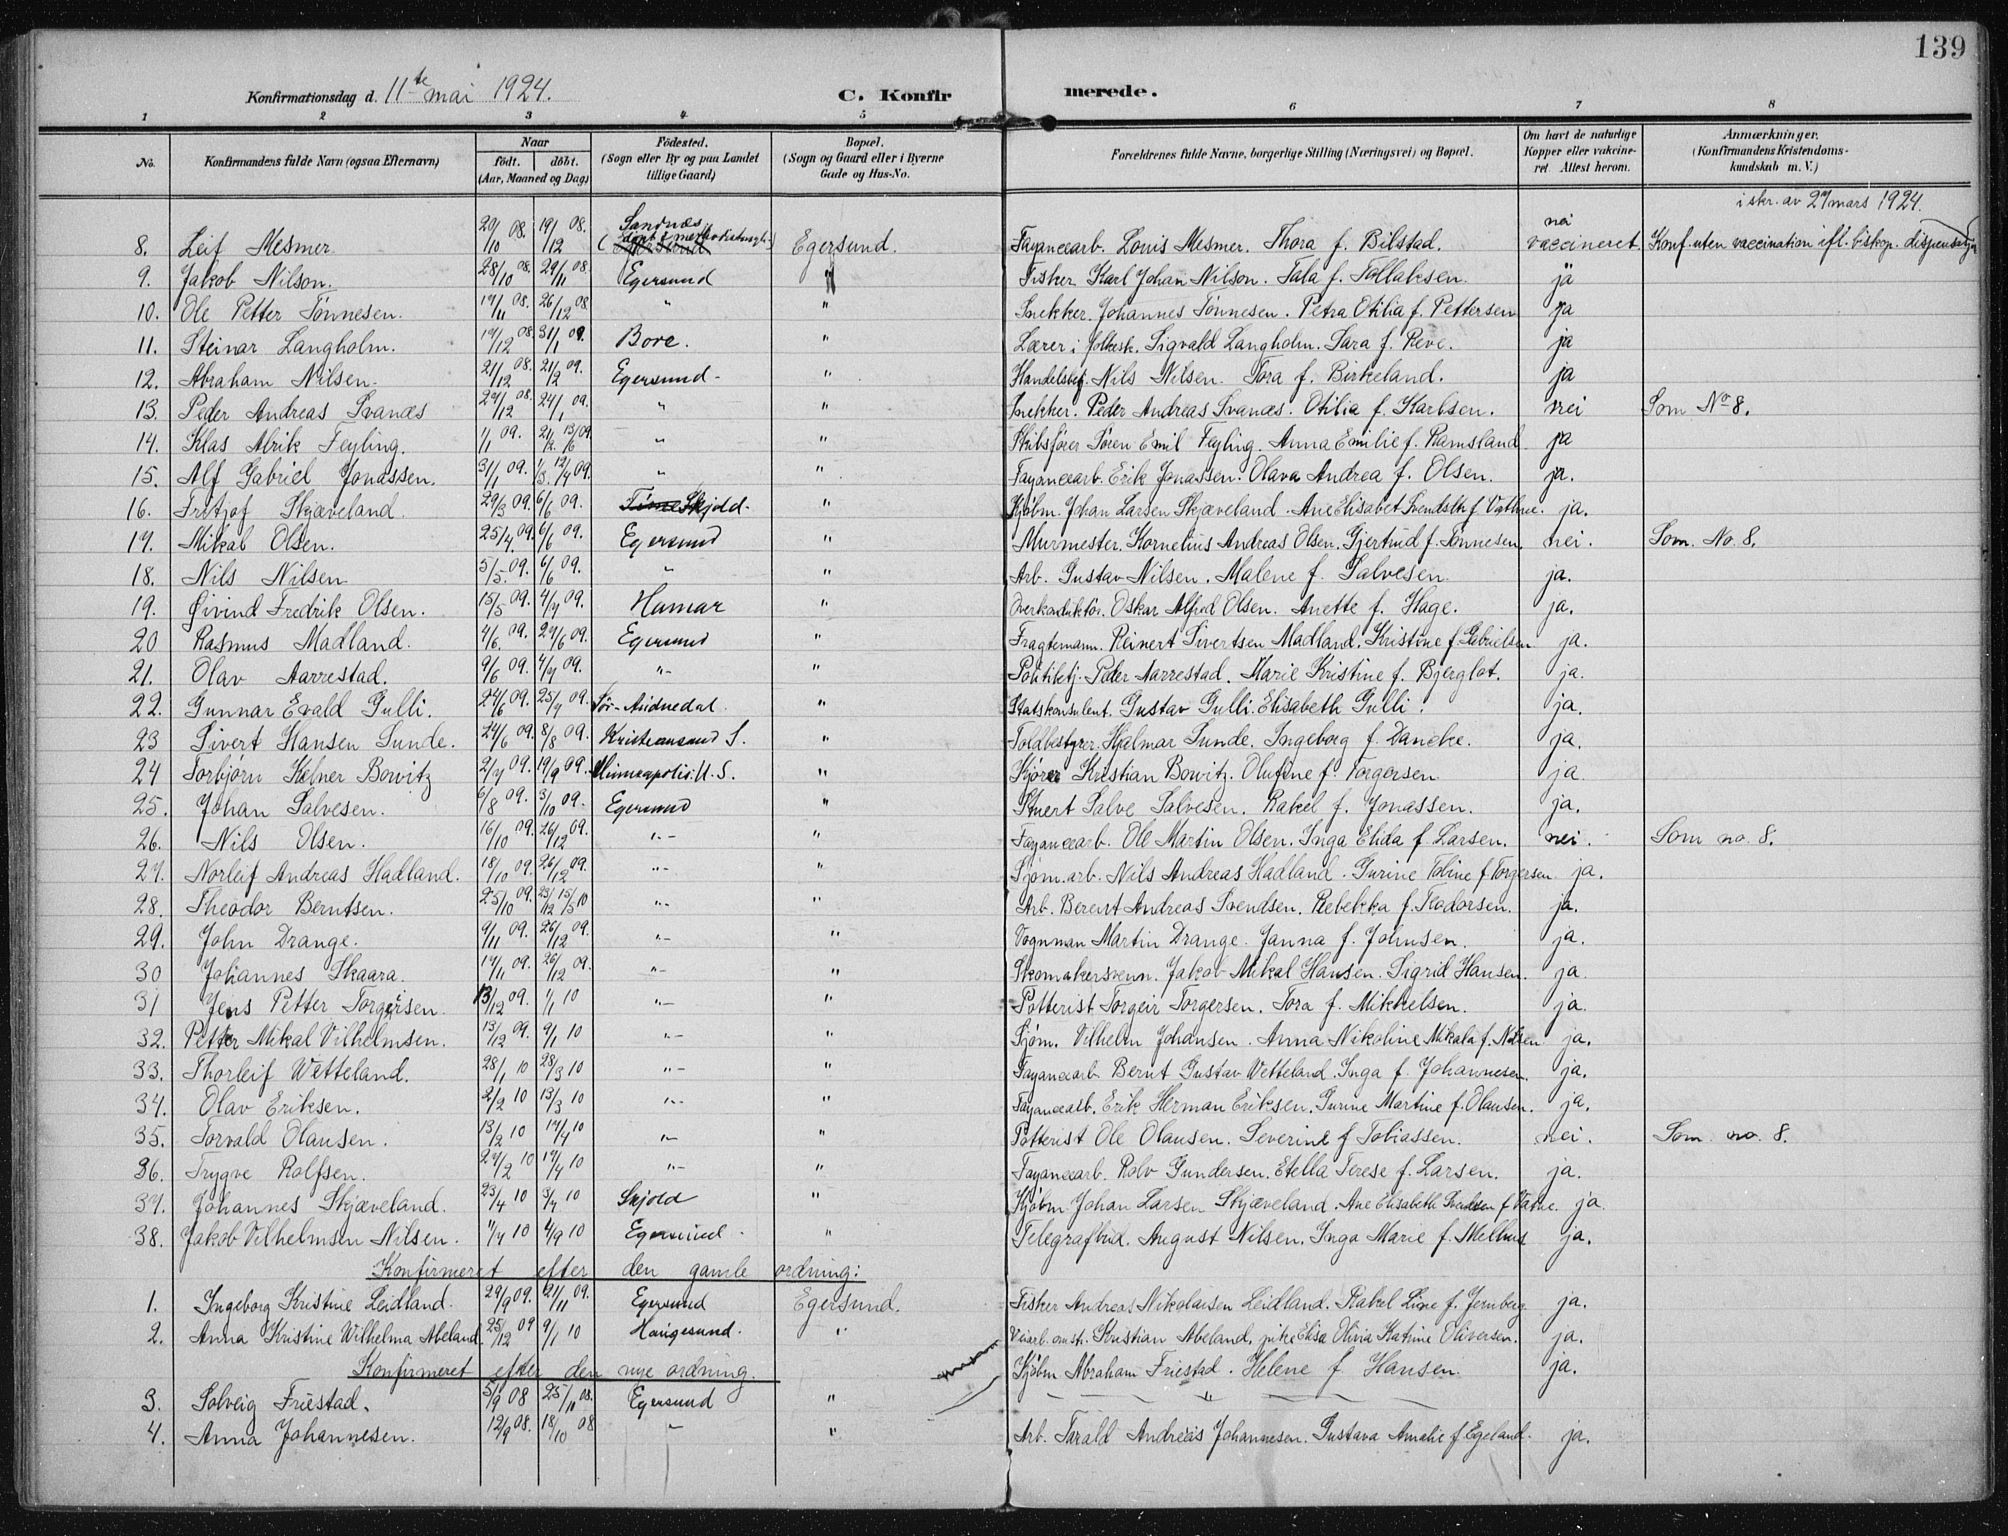 139
Konfirmationsdag d. 11te mai 1924. C. Konfirmerede.
1 2 3 4 5 6 7 8
No. Konfirmandens fulde Navn (ogsaa Efternavn) Naar født. døbt. (Aar, Maaned og Dag) Fødested. (Sogn eller By og paa Landet tillige Gaard) Bopæl. (Sogn og Gaard eller i Byerne Gade og Hus-No. Forældrenes fulde Navne, borgerlige Stilling (Næringsvei) og Bopæl. Om havt de naturlige Kopper eller vakcineret. Attest herom. Anmærkninger. (Konfirmandens Kristendomskundskab m. V.)
i skr. av 27 mars 1924.
8. Leif Mesmer 20/10 08. 19/12 08. Sandnæs Egersund. Fayancearb. Louis Mesmer. Thora f. Bilstad. nei vaccineret Konf. uten vaccination ifl. biskop.
9. Jakob Nilson. 28/10 08. 29/11 08. Egersund " Fisker Karl Johan Nilson. Tala f. Tollaksen. ja
10. Ole Petter Tønnesen. 17/11 08. 26/12 08. " " Snekker. Johannes Tønnesen. Petra Otilia f. Pettersen ja
11. Steinar Langholm. 17/12 08. 31/1 09. Bore. " Lærer i folkesk. Sigvald Langholm. Sara f. Reve. ja
12. Abraham Nilsen. 21/12 08. 21/2 09. Egersund - " Handelsbef. Nils Nilsen. Tora f. Birkeland. ja
13. Peder Andreas Svanæs 27/12 08. 24/1 09. " " Snekker. Peder Andreas Svanæs. Otilia f. Karlsen. nei Som No 8.
14. Klas Alrik Feyling. 1/1 09. 21/2. 13/6 09 " " Skibsfører Søren Emil Feyling. Anna Emilie f. Ramsland ja
15. Alf Gabriel Jonassen. 31/1 09. 1/3. 12/4 09. " " Fayancearb. Erik Jonassen. Olava Andrea f. Olsen. ja.
16. Fritjof Skjæveland. 29/3 09. 6/6 09. Skjold. " Kjøbm. Johan Larsen Skjæveland. Ane Elisabet Svendsdtr f. Vatne. ja.
17. Mikal Olsen. 25/4 09. 6/6 09. Egersund " Murmester. Kornelius Andreas Olsen. Gjertrud f. Tønnesen. nei. Som. No. 8.
18. Nils Nilsen 5/5. 09. 6/6 09. " " Arb. Gustav Nilsen. Malene f. Salvesen. ja.
19. Øivind Fredrik Olsen. 15/5 09. 4/7 09. Hamar " Overkonduktør. Oskar Alfred Olsen. Anette f. Hage. ja.
20 Rasmus Madland. 4/6. 09. 27/6 09. Egersund " Fragtemann. Reinert Sivertsen Madland. Kristine f. Gabrielsen ja.
21. Olav Aarrestad. 9/6 09. 4/7 09. " - " Politibtj. Peder Aarrestad. Marie Kristine f. Bjerglot. ja.
22. Gunnar Evald Gulli. 24/6 09. 25/9 09. Sør-Audnedal. " Statskonsulent. Gustav Gulli. Elisabeth Gulli. ja.
23 Sivert Hansen Sunde. 24/6 09. 8/8 09. Kristiansand S. " Toldbestyrer. Hjalmar Sunde. Ingeborg f. Dancke. ja.
24 Torbjørn Kelner Bowitz 2/7 09. 19/9 09. Minneapolis. U. S. " Kjører Kristian Bowitz. Olufine f. Torgersen. ja.
25. Johan Salvesen. 6/8 09. 3/10 09. Egersund " Stuert Salve Salvesen. Rakel f. Jonassen. ja.
26. Nils Olsen. 16/10 09. 26/12 09. " - " Fayancearb. Ole Martin Olsen. Inga Elida f. Larsen. nei. Som no. 8.
27. Norleif Andreas Hadland. 18/10 09. 26/12 09. " - " Sjøm. arb. Nils Andreas Hadland. Gurine Toline f. Torgersen ja.
28. Theodor Berntsen. 25/10 09. 23/12 15/3 10 " - " Arb. Berent Andreas Svendsen. Rebekka f. Teodorsen. ja.
29. John Drange. 9/11 09. 26/12 09. " - " Vognman Martin Drange. Janna f. Johnsen. ja.
30 Johannes Skaara. 17/11 09. 26/12 09. " - " Skomakersvenn. Jakob Mikal Hansen. Sigrid Hansen. ja.
31 Jens Petter Torgersen. 13/12 09. 1/1 10 " - " Potterist Torgeir Torgersen. Tora f. Mikkelsen. ja.
32. Petter Mikal Vilhelmsen. 13/12 09. 9/1 10 " - " Sjøm. Vilhelm Johansen. Anna Nikoline Mikala f. Nilsen ja.
33. Thorleif Wetteland. 28/1 10 28/3 10 " - " Fayancearb. Bernt Gustav Wetteland. Inga f. Johannesen. ja.
34. Olav Eriksen. 2/2 10 13/3 10 " - " Fayancearb. Erik Herman Eriksen. Gurine Martine f. Olausen. ja.
35. Torvald Olausen. 13/2 10 17/4 10 " - " Potterist Ole Olausen. Severine f. Tobiassen. nei. Som. no. 8.
36. Trygve Rolfsen. 27/2 10 17/4 10 " - " Fayancearb. Rolv Gundersen. Etella Terese f. Larsen. ja.
37. Johannes Skjæveland. 23/4 10 3/7 10 Skjold " Kjøbm. Johan Larsen Skjæveland. Ane Elisabeth Svendsen f. Vatne. ja.
38. Jakob Vilhelmsen Nilsen. 11/7 10 4/9 10 Egersund. " Telegrafbud. August Nilsen. Inga Marie f. Melhus ja.
Konfirmeret efter den gamle ordning:
1. Ingeborg Kristine Leidland. 29/9 09. 21/11 09. Egersund Egersund. Fisker Andreas Nikolaisen Leidland. Rakel Line f. Jernberg ja.
2. Anna Kristine Wilhelma Abeland. 25/12 09 9/1 10 Haugesund. " Kristian Abeland, pike Elisa Olivia Katrine Oliversen. ja.
Konfirmeret efter den nye ordning. Kjøbm. Abraham Friestad. Helene f. Hansen. ja.
3. Solveig Friestad. 5/9 08 25/10 08. Egersund " "
4. Anna Johannesen. 12/9 08. 18/10 08 - " Arb. Tarald Andreas Johannesen. Gustava Amalie f. Egeland. ja.